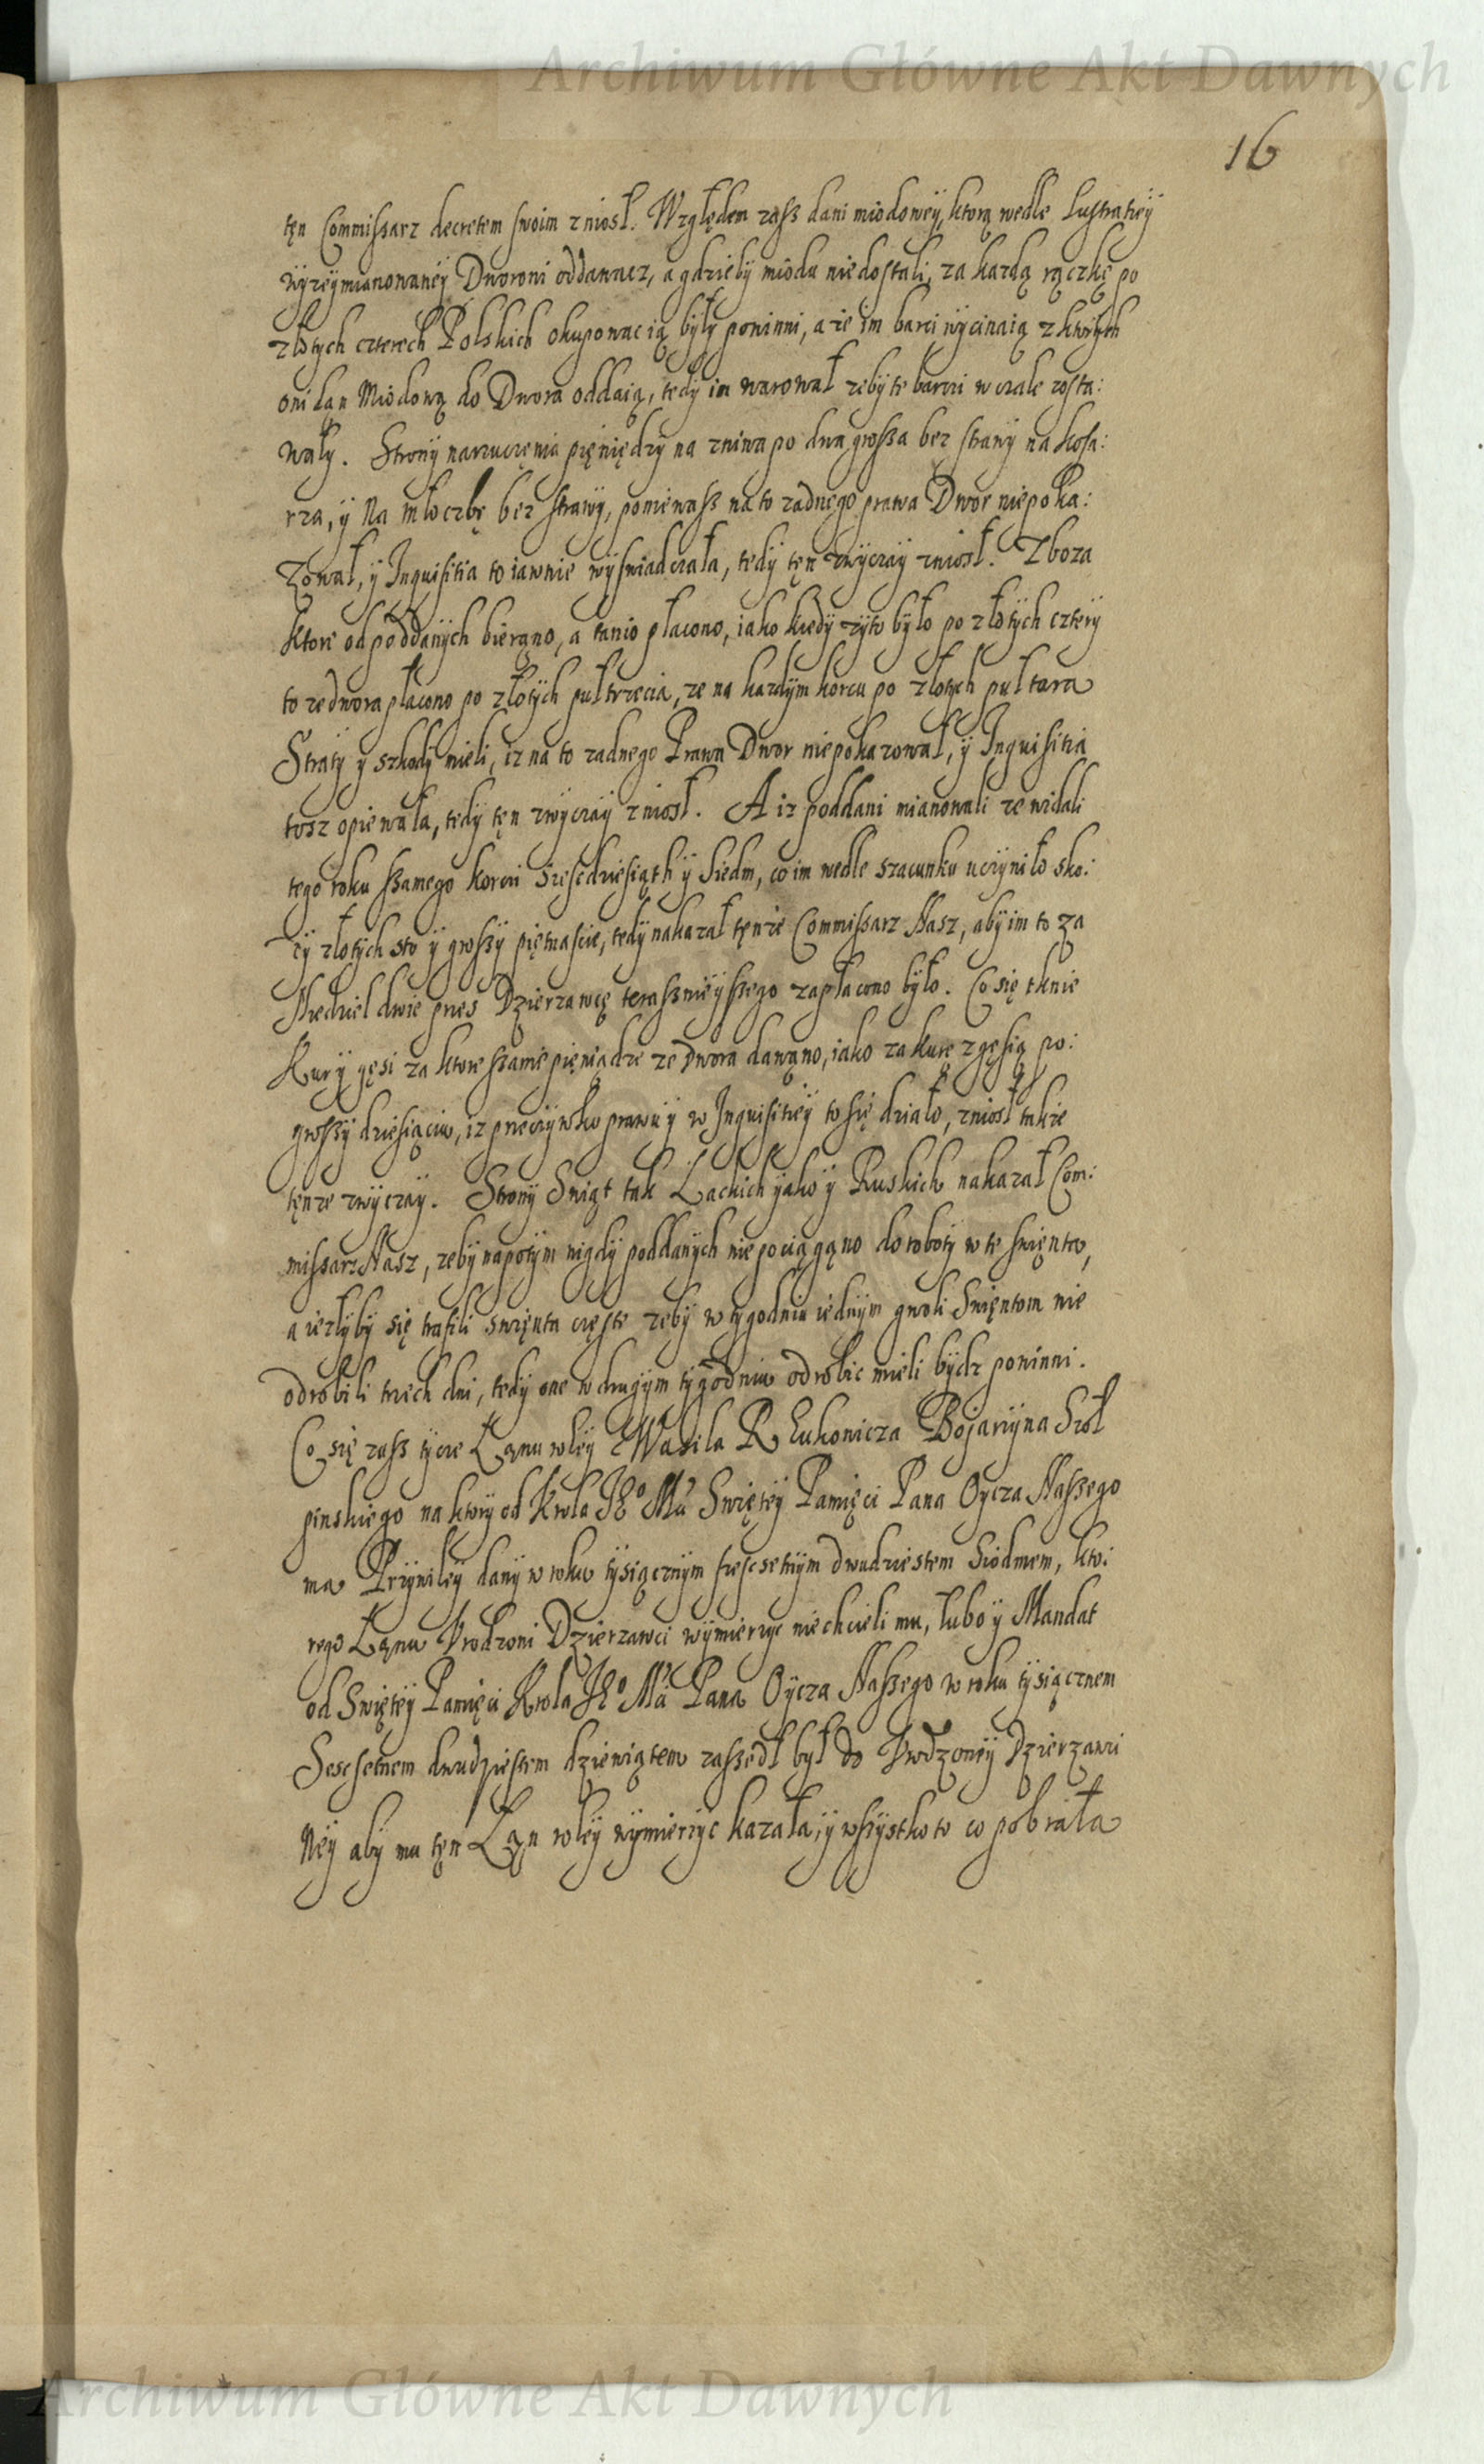 Archiwum Główne Akt Dawnych
16
tęn Commissarz decretem swoim zniosł. Względem zasz dani miodowey, ktorą wedle Lustratiey
wyzeymianowaney Dworowi oddawacz, a gdzieby miodu niedostali, za kazdą rączkę po
złotych czterech Polskich okupowac ią były powinni, a ze im barci wycinaią z ktorych
oni dąn Miodową do Dwora oddaią, tedy im warował zeby te barczi w czale zosta:
wały. Strony narzuczęnia pięniędzy na zniwa po dwa grosza bez strawy na kosa:
rza, y Na młoczbę bez strawy, poniewasz na to zadnego prawa Dwor niepoka:
zował, y Inquisitia to iawnie wyświadczała, tedy tęn zwyczay zniosł. Zboza
ktore od poddanych bierąno, a tanio płacono, iako kiedy zyto było po złotych cztery
to ze dwora płacono po złotych pułtrzecia, ze na kazdym korcu po złotych pułtora
Straty y szkody mieli, iz na to zadnego Prawa Dwor niepokazował, y Inquisitia
tosz opiewała, tedy tęn zwyczay zniosł. A iz poddani mianowali ze widali
tego roku szamego korczi szescdziesiąth y siedm, co im wedle szacunku uczyniło sko:
dy złotych sto y groszy piętnascie, tedy nakazał tęnze Commissarz Nasz, aby im to za
Niedziel dwie przes Dzierzawcę teraszneyszego zapłacono było. Co się tknie
Kury gęsi za ktore szamé pięniądze ze Dwora dawąno, iako za kurę z gęsią po:
groszy dziesiąciu, iz przeczywko prawu y w Inquisitiey to się działo, zniosł takze
tęnze zwyczay. Strony Swiąt tak Lackich yako y Ruskich nakazał Com:
missarz Nasz, zeby napotym nigdy poddanych niepociągąno do roboty w te swięnta,
a iezlyby się trafili swięnta częste zeby w tygodniu iednym gwoli Swięntom nie
odrobili trzech dni, tedy one w drugym tygodniu odrobic mieli bydz powinni.
Co się zasz tycze Łąnu roley Wasila R Lukowicza Bojarzyna Szoł
penskiego na ktory od Krola Jº Mci Swiętey Pamięci Pana Oycza Naszego
ma Przywiley dany w roku tysiącznym szescsetnym dwudziestem Siodmem, kto:
rego Łąnu Urodzoni Dzierzawci wymierzyc niechcieli mu, lubo y Mandat
od Swiętey Pamięci Krola Jº Mci Pana Oycza Naszego w roku tysiącznem
Sescsetnem dwudziestem dziewiątem zaszedł był do Urodzoney Dzierzawi
Ney aby mu tęn Łąn roley wymierzyc kazała, y wszystko to co pobrała
Archiwum Główne Akt Dawnych